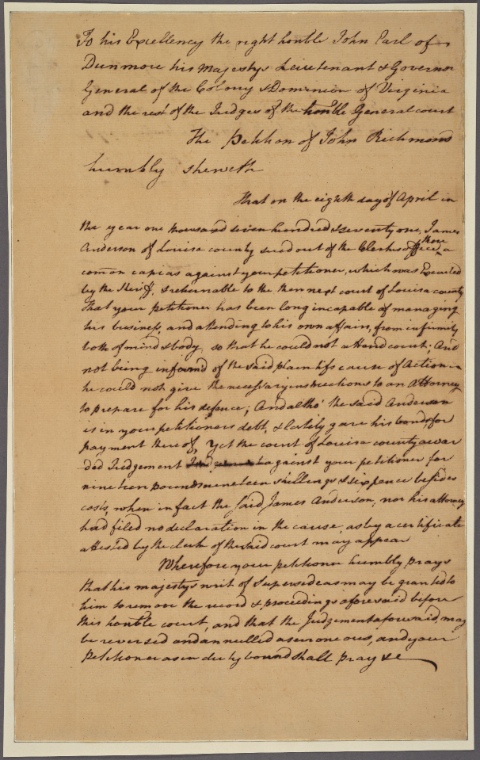 To his Excellency the right honble John Earl of
Dunmore his Majestys Lieutenant & Governor
General of the Colony & Dominion of Virginia
and the rest of the Judges of the honble General court
The Petition of John Richmond
humbly sheweth
That on the eighth day of April in
the year one thousand seven hundred & seventy one, James
Anderson of Louisa county sued out of the Clerks office
there a
common capias against your petitioner, which was Executed
by the Sherif, & returnable to the then next court of Louisa county
that your petitioner has been long incapable of managing
his business, and attending to his own affairs, from infirmity
both of mind & body, so that he could not attend court; And
not being informd of the said plaintifs cause of Action
he could not give the necessary instructions to an Attorney
to prepare for his defence; And altho' the said Anderson
is in your petitioners debt, & lately gave his bond for
payment thereof, Yet the court of Louisa county awar
ded Judgement against your petitioner for
nineteen pounds nineteen shillings & sixpence besides
costs, when in fact the said James Anderson, nor his attorney
had filed no declaration in the cause, as by a certificate
attested by the clerk of the said court may appear
Wherefore your petitioner humbly prays
that his majestys writ of Supersedeas may be granted to
him to remove the record & proceedings aforesaid before
this honble court, and that the Judgement aforesaid, may
be reversed and annulled as erroneous, and your
Petitioner as in duty bound shall pray &c